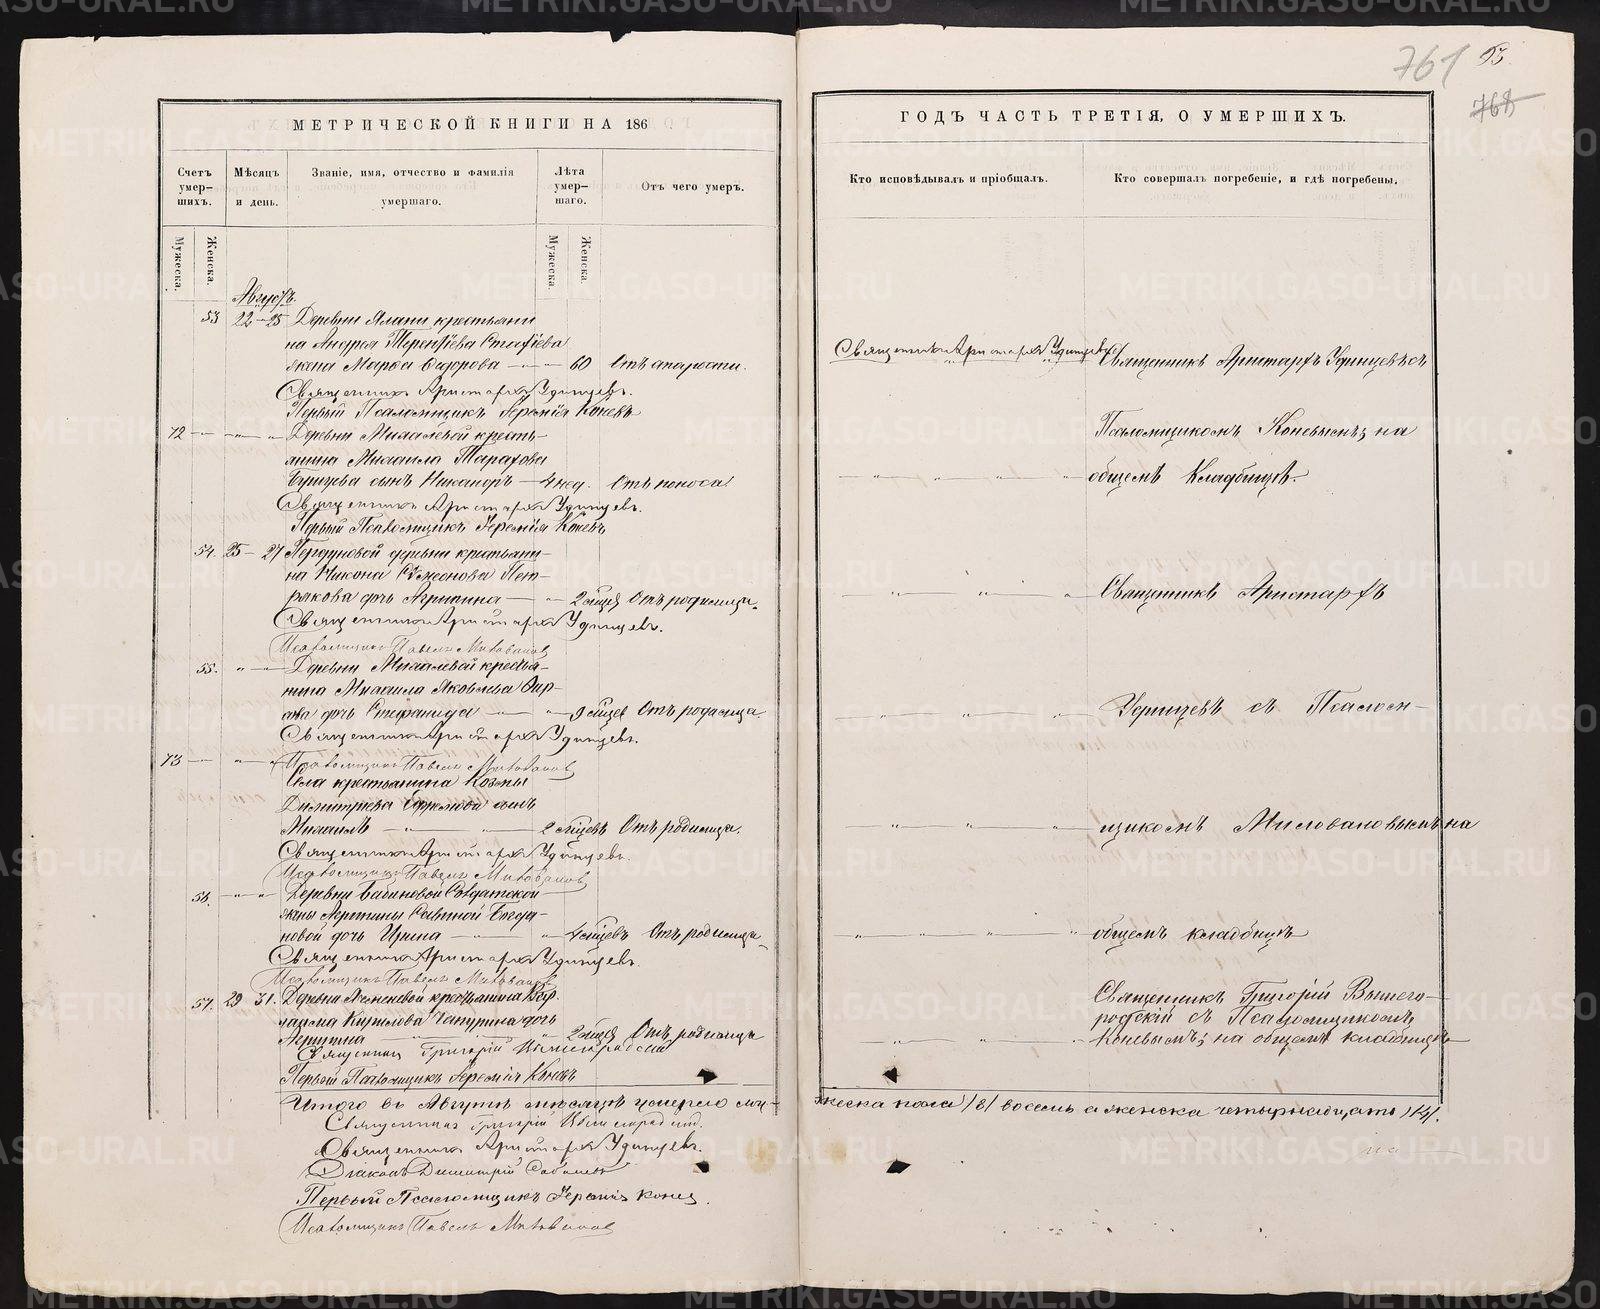 761 93
768
МЕТРИЧЕСКОЙ КНИГИ НА 186
ГОДЪ ЧАСТЬ ТРЕТІЯ, О УМЕРШИХЪ.
Счетъ умер-шихъ.
Мѣсяцъ и день.
Званіе, имя, отчество и фамилія умершаго.
Лѣта умер-шаго.
Отъ чего умеръ.
Кто исповѣдывалъ и пріобщалъ.
Кто совершалъ погребеніе, и гдѣ погребены.
Мужеска. Женска.
Мужеска. Женска.
Августъ.
53 22-25 Деревни крестьяни
на Андрея Терентіева
жена Марѳа Сидорова 60 Отъ старости.
Священникъ Аристархъ Удинцевъ.
Первый Псаломщикъ Іеремія Коневъ
Священникъ Аристархъ Удинцевъ
Священникъ Аристархъ Удинцевъ съ
Псаломщикомъ Коневымъ; на
72 Деревни Михалевой кресть-
янина Михаила Тарахова
сынъ Никаноръ 4 нед. Отъ поноса
общемъ кладбищѣ.
Священникъ Аристархъ Удинцевъ.
Первый Псаломщикъ Іеремія Коневъ
54. 25-27 деревни крестьяни-
на Никона Симеонова
дочь Агрипина 2 мѣсяц. Отъ родимца.
Священникъ Аристархъ
Священникъ Аристархъ Удинцевъ.
Псаломщикъ Павелъ Миловановъ
55. Деревни Михалевой кресть-
янина Михаила Яковлева
дочь Стефанида 9 мѣсяцев Отъ родимца.
Удинцевъ съ Псалом-
Священникъ Аристархъ Удинцевъ.
Псаломщикъ Павелъ Миловановъ
73 Села крестьянина Козмы
Димитріева Ефремова сынъ
Михаилъ 2 мѣсяцевъ Отъ родимца.
щикомъ Миловановымъ на
Священникъ Аристархъ Удинцевъ.
Псаломщикъ Павелъ Миловановъ
56. Деревни Бабиновой Солдатской
жены Савиной Богда-
новой дочь Ирина 4 мѣсяцевъ Отъ родимца
общемъ кладбищѣ
Священникъ Аристархъ Удинцевъ.
Псаломщикъ Павелъ Миловановъ
57. 29 31. Деревни крестьянина Вар-
лаама Кирилова Чепурина дочь
2 мѣсяц. Отъ родимца
Священникъ Григорій Вышего-
родскій съ Псаломщикомъ
Коневымъ; на общемъ кладбищѣ
Священникъ Григорій Вышегородскій
Первый Псаломщикъ Іеремія Коневъ
Итого въ Августѣ мѣсяцѣ умерло му-
жеска пола /8/ восемь а женска четырнадцать /14/.
Священникъ Григорій Вышегородскій.
Священникъ Аристархъ Удинцевъ.
Діаконъ Димитрій
Первый Псаломщикъ Іеремія Коневъ.
Псаломщикъ Павелъ Миловановъ
METRIKI.GASO-URAL.RU